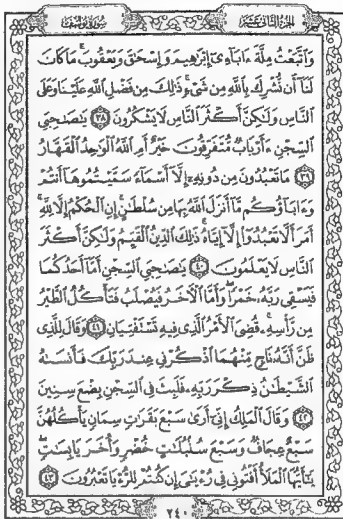 الجزء الثاني عشر
سورة يوسف
وَاتَّبَعْتُ مِلَّةَ ءَابَآءِىٓ إِبْرَٰهِيمَ وَإِسْحَٰقَ وَيَعْقُوبَ ۚ مَا كَانَ
لَنَآ أَن نُّشْرِكَ بِٱللَّهِ مِن شَىْءٍ ۚ ذَٰلِكَ مِن فَضْلِ ٱللَّهِ عَلَيْنَا وَعَلَى
ٱلنَّاسِ وَلَٰكِنَّ أَكْثَرَ ٱلنَّاسِ لَا يَشْكُرُونَ ٣٨ يَٰصَٰحِبَىِ
ٱلسِّجْنِ ءَأَرْبَابٌ مُّتَفَرِّقُونَ خَيْرٌ أَمِ ٱللَّهُ ٱلْوَٰحِدُ ٱلْقَهَّارُ
٣٩ مَا تَعْبُدُونَ مِن دُونِهِۦٓ إِلَّآ أَسْمَآءً سَمَّيْتُمُوهَآ أَنتُمْ
وَءَابَآؤُكُم مَّآ أَنزَلَ ٱللَّهُ بِهَا مِن سُلْطَٰنٍ ۚ إِنِ ٱلْحُكْمُ إِلَّا لِلَّهِ ۚ
أَمَرَ أَلَّا تَعْبُدُوٓا۟ إِلَّآ إِيَّاهُ ۚ ذَٰلِكَ ٱلدِّينُ ٱلْقَيِّمُ وَلَٰكِنَّ أَكْثَرَ
ٱلنَّاسِ لَا يَعْلَمُونَ ٤٠ يَٰصَٰحِبَىِ ٱلسِّجْنِ أَمَّآ أَحَدُكُمَا
فَيَسْقِى رَبَّهُۥ خَمْرًا ۖ وَأَمَّا ٱلْءَاخَرُ فَيُصْلَبُ فَتَأْكُلُ ٱلطَّيْرُ
مِن رَّأْسِهِۦ ۚ قُضِىَ ٱلْأَمْرُ ٱلَّذِى فِيهِ تَسْتَفْتِيَانِ ٤١ وَقَالَ لِلَّذِى
ظَنَّ أَنَّهُۥ نَاجٍ مِّنْهُمَا ٱذْكُرْنِى عِندَ رَبِّكَ فَأَنسَىٰهُ
ٱلشَّيْطَٰنُ ذِكْرَ رَبِّهِۦ فَلَبِثَ فِى ٱلسِّجْنِ بِضْعَ سِنِينَ
٤٢ وَقَالَ ٱلْمَلِكُ إِنِّىٓ أَرَىٰ سَبْعَ بَقَرَٰتٍ سِمَانٍ يَأْكُلُهُنَّ
سَبْعٌ عِجَافٌ وَسَبْعَ سُنۢبُلَٰتٍ خُضْرٍ وَأُخَرَ يَابِسَٰتٍ ۖ
يَٰٓأَيُّهَا ٱلْمَلَأُ أَفْتُونِى فِى رُءْيَٰىَ إِن كُنتُمْ لِلرُّءْيَا تَعْبُرُونَ ٤٣
٢٤٠